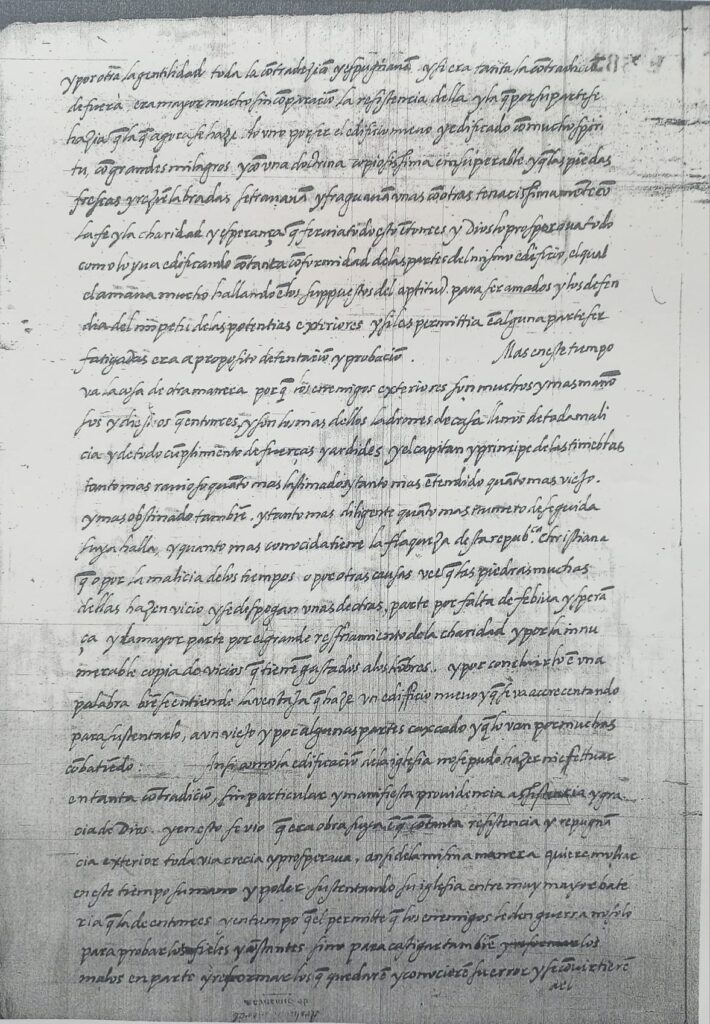 y por otra la gentilidad toda la cōtradeziā y espugnauā. y si era tanta la cōtradiciō
de fuera era mayor mucho sin cōparaciō la resistencia della y la q̄ por su parte se
hazia q̄ la q̄ agora se haze. lo vno por ser el edificio nueuo y edificado cō mucho spiri
tu, cō grandes milagros y cō vna doctrina copiosissima e insuperable y q̄ las piedas
frescas y rezien labradas se trauauā y fraguauā vnas cō otras tenacissimamente cō
la fe y la charidad y esperança q̄ feruia todo esto entonces y Dios lo prosperaua todo
como lo yua edificando cō tanta cōformidad de las partes del mismo edificio, el qual
el amaua mucho hallando ēlos suppuestos del aptitud para ser amados y los defen
dia del impetu de las potentias exteriores y si las permittia ē alguna parte ser
fatigadas era a proposito de tentaciō y probaciō. Mas en este tiempo
va la cosa de otra manera porq̄ los enemigos exteriores son muchos y mas mano
sos y diestros q̄ entonces, y son lo mas dellos ladrones de casa llenos de toda mali
cia y de todo cūplimento de fuerças y ardides y el capitan y principe de las tinieblas
tanto mas rauioso quāto mas lastimado y tanto mas ētendido quāto mas viejo.
y mas obstinado tambiē. y tanto mas diligente quāto mas numero de seguida
suya halla, y quanto mas conocida tiene la flaqueza desta repub.ca christiana
q̄ o por la malicia de los tiempos o por otras causas vee q̄ las piedras muchas
dellas hazen vicio y se despegan vnas de otras, parte por falta de fe biua y sperā
ça y la mayor parte por el grande resfriamiento de la charidad y por la innu
merable copia de vicios q̄ tienē gastados a los hōbres. y por concluirlo ē vna
palabra biē se entiende la ventaja q̄ haze vn edifficio nueuo y q̄ se va accrecentando
para sustentarlo, a vn viejo y por algunas partes caxcado y q̄ lo van por muchas
cōbatiēdo. Ansi como la edificaciō de la iglesia no se pudo hazer ni effettuar
en tanta cōtradiciō, sin particular y manifiesta prouidencia assistencia y gra
cia de Dios. y en esto se vio q̄ era obra suya ē q̄ cō tanta resistencia y repugnā
cia exterior toda via crecia y prosperaua, ansi de la misma manera quiere mostrar
en este tiempo su mano y poder sustentando su iglesia entre muy mayor bate
ria q̄ la de entonces y en tiempo q̄ el permitte q̄ los enemigos le den guerra no solo
para probar los fieles y cōstantes sino para castigar tambiē los
malos en parte y reformar los q̄ quedarē y conocierē su error y se cōuirtierē
ael